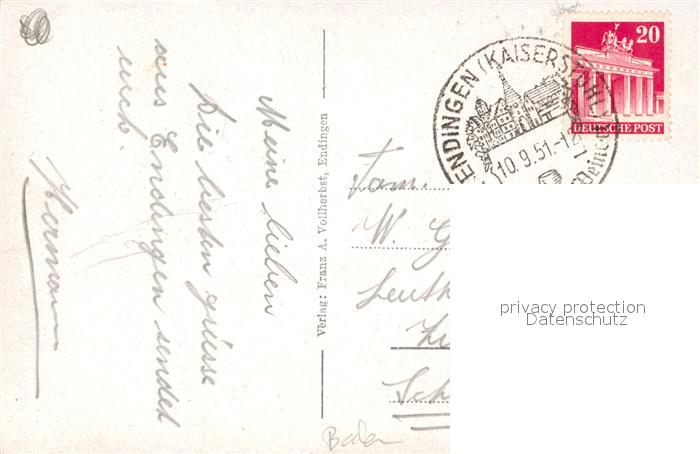 Meine lieben
Die besten grüsse
aus Endingen sendet
euch.
Hermann
Verlag: Franz A. Vollherbst, Endingen
ENDINGEN (KAISERSTUHL)
10.9.51.-12
20
DEUTSCHE POST
Fam.
W. G
Sch
Baden
privacy protection
Datenschutz